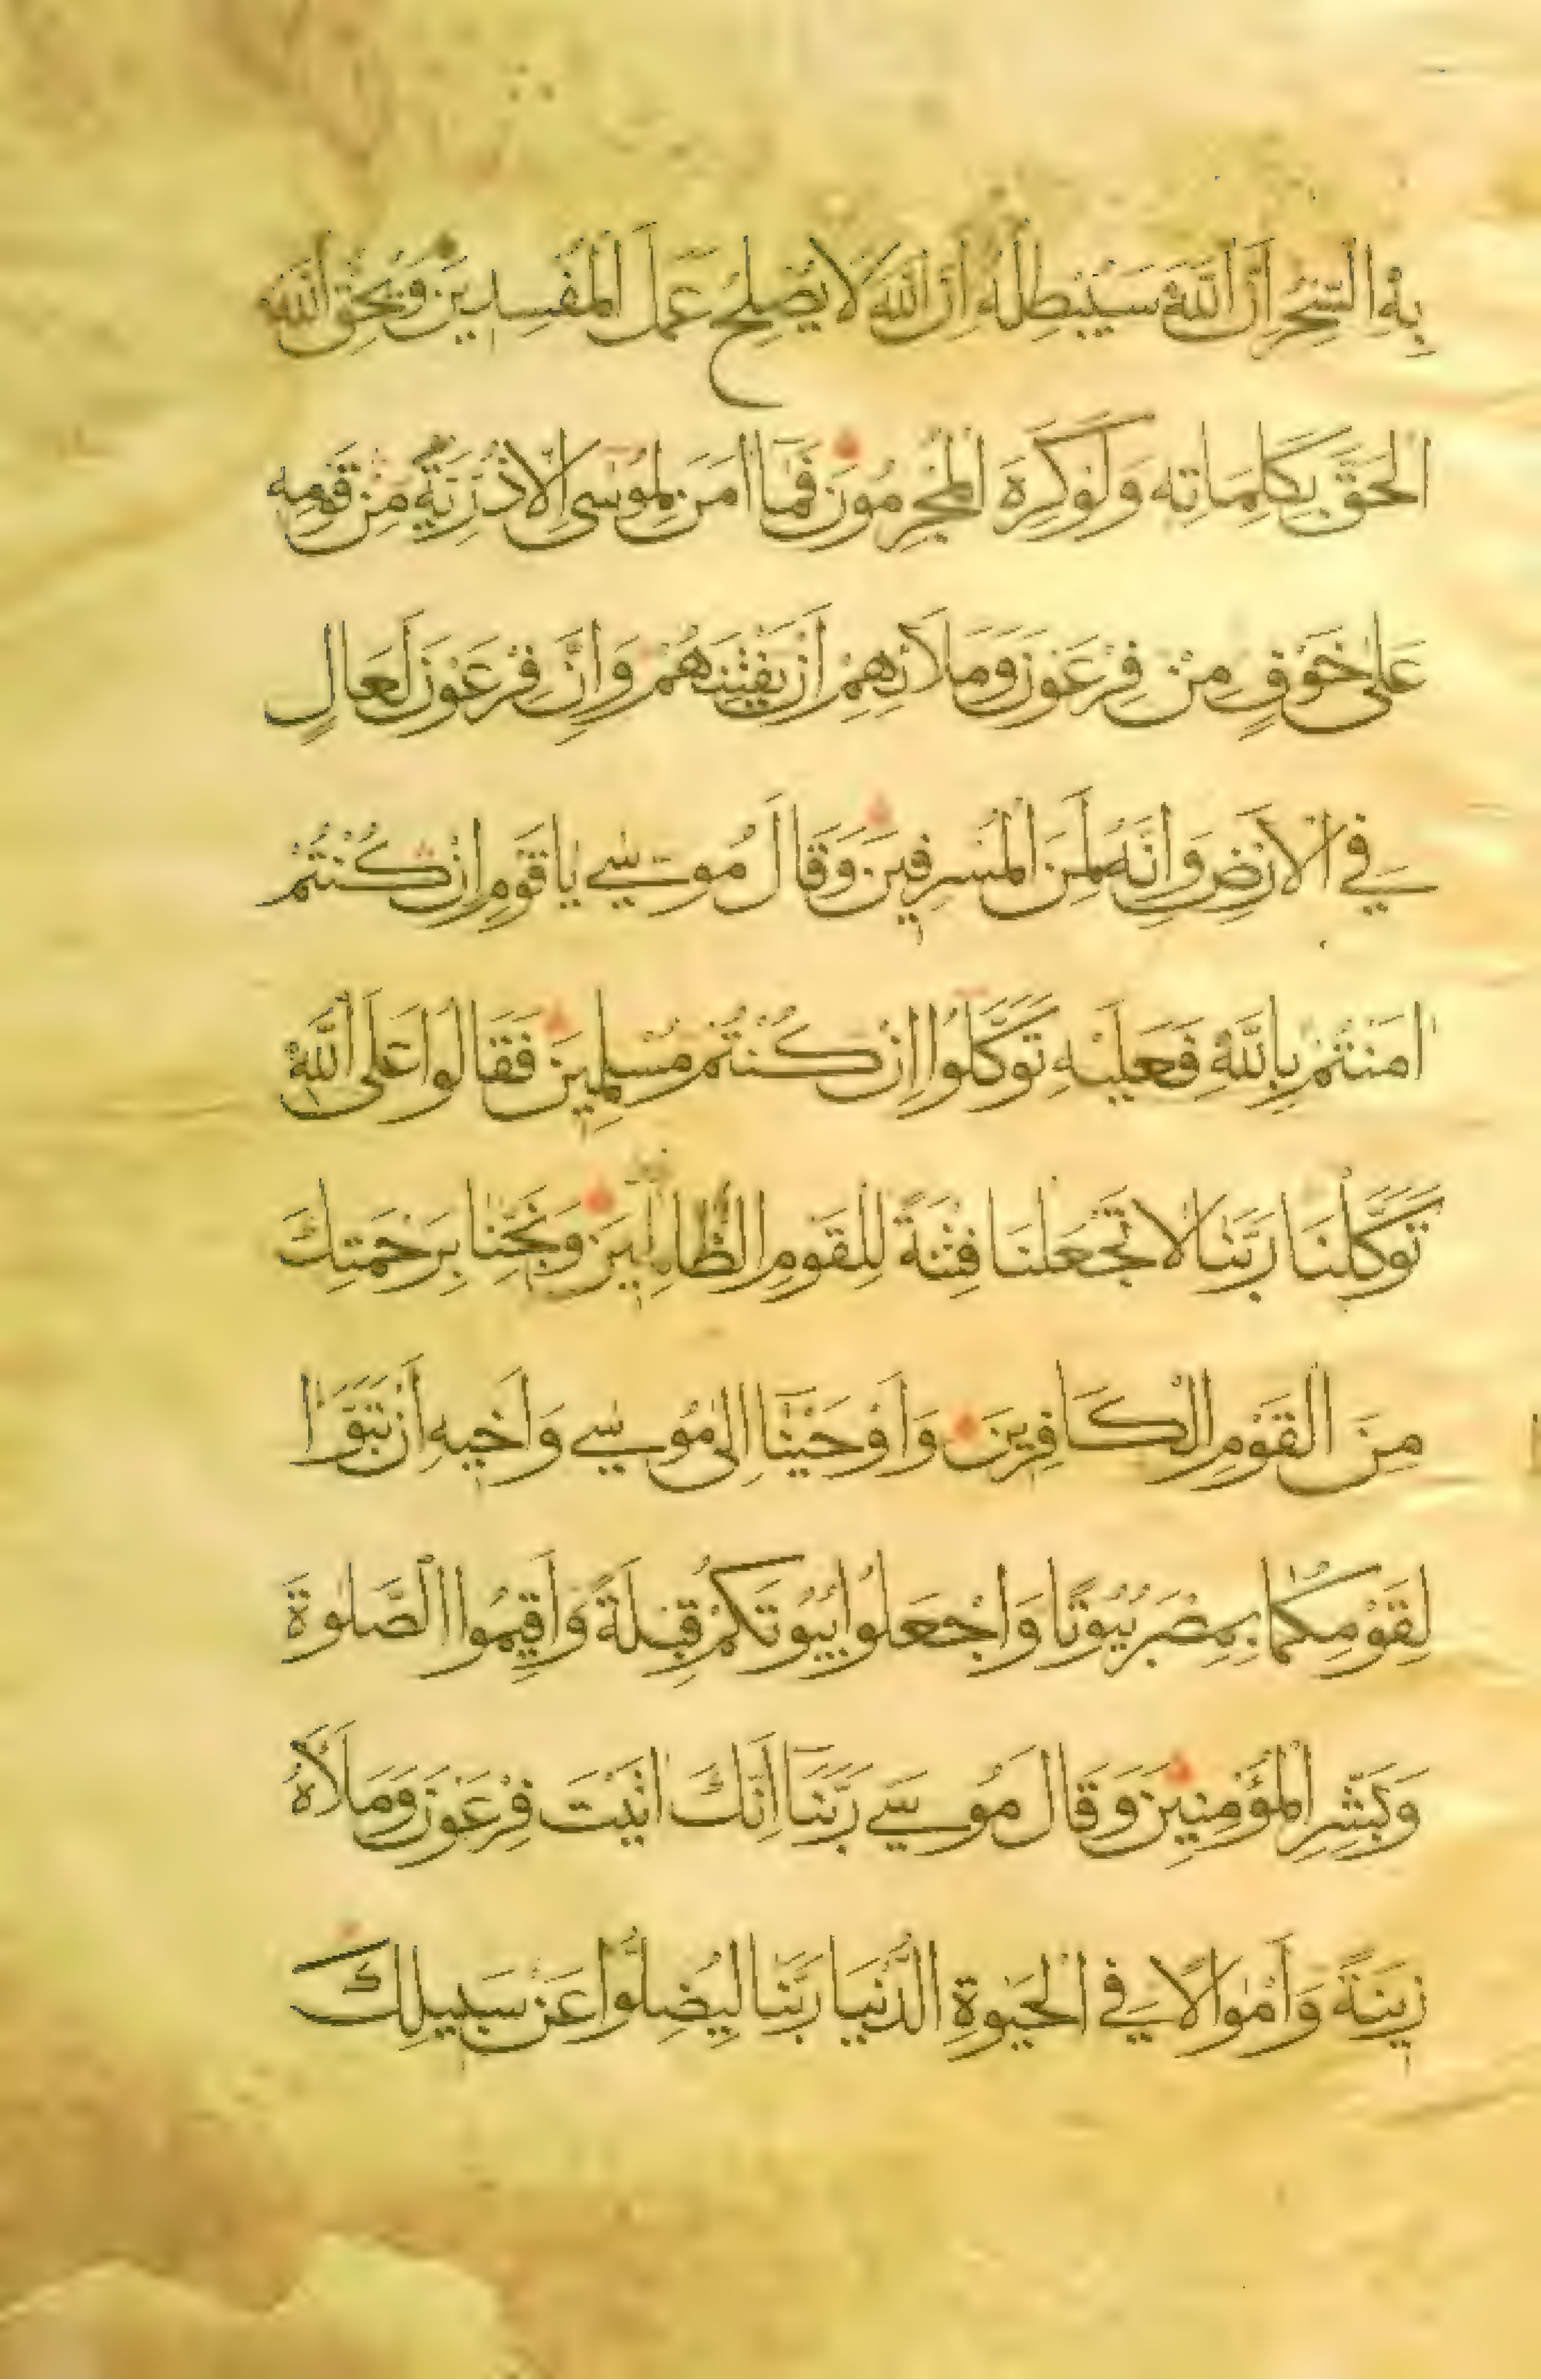 بِهِ السِّحْرُ اِنَّ اللّٰهَ سَيُبْطِلُهُ اِنَّ اللّٰهَ لَا يُصْلِحُ عَمَلَ الْمُفْسِدِينَ وَيُحِقُّ اللّٰهُ
الْحَقَّ بِكَلِمَاتِهِ وَلَوْ كَرِهَ الْمُجْرِمُونَ فَمَا اٰمَنَ لِمُوسٰى اِلَّا ذُرِّيَّةٌ مِنْ قَوْمِهِ
عَلٰى خَوْفٍ مِنْ فِرْعَوْنَ وَمَلَائِهِمْ اَنْ يَفْتِنَهُمْ وَاِنَّ فِرْعَوْنَ لَعَالٍ
فِي الْاَرْضِ وَاِنَّهُ لَمِنَ الْمُسْرِفِينَ وَقَالَ مُوسٰي يَا قَوْمِ اِنْ كُنْتُمْ
اٰمَنْتُمْ بِاللّٰهِ فَعَلَيْهِ تَوَكَّلُوا اِنْ كُنْتُمْ مُسْلِمِينَ فَقَالُوا عَلَى اللّٰهِ
تَوَكَّلْنَا رَبَّنَا لَا تَجْعَلْنَا فِتْنَةً لِلْقَوْمِ الظَّالِمِينَ وَنَجِّنَا بِرَحْمَتِكَ
مِنَ الْقَوْمِ الْكَافِرِينَ وَاَوْحَيْنَا اِلٰى مُوسٰي وَاَخِيهِ اَنْ تَبَوَّاٰ
لِقَوْمِكُمَا بِمِصْرَ بُيُوتًا وَاجْعَلُوا بُيُوتَكُمْ قِبْلَةً وَاَقِيمُوا الصَّلٰوةَ
وَبَشِّرِ الْمُؤْمِنِينَ وَقَالَ مُوسٰي رَبَّنَا اِنَّكَ اٰتَيْتَ فِرْعَوْنَ وَمَلَاَهُ
زِينَةً وَاَمْوَالًا فِي الْحَيٰوةِ الدُّنْيَا رَبَّنَا لِيُضِلُّوا عَنْ سَبِيلِكَ